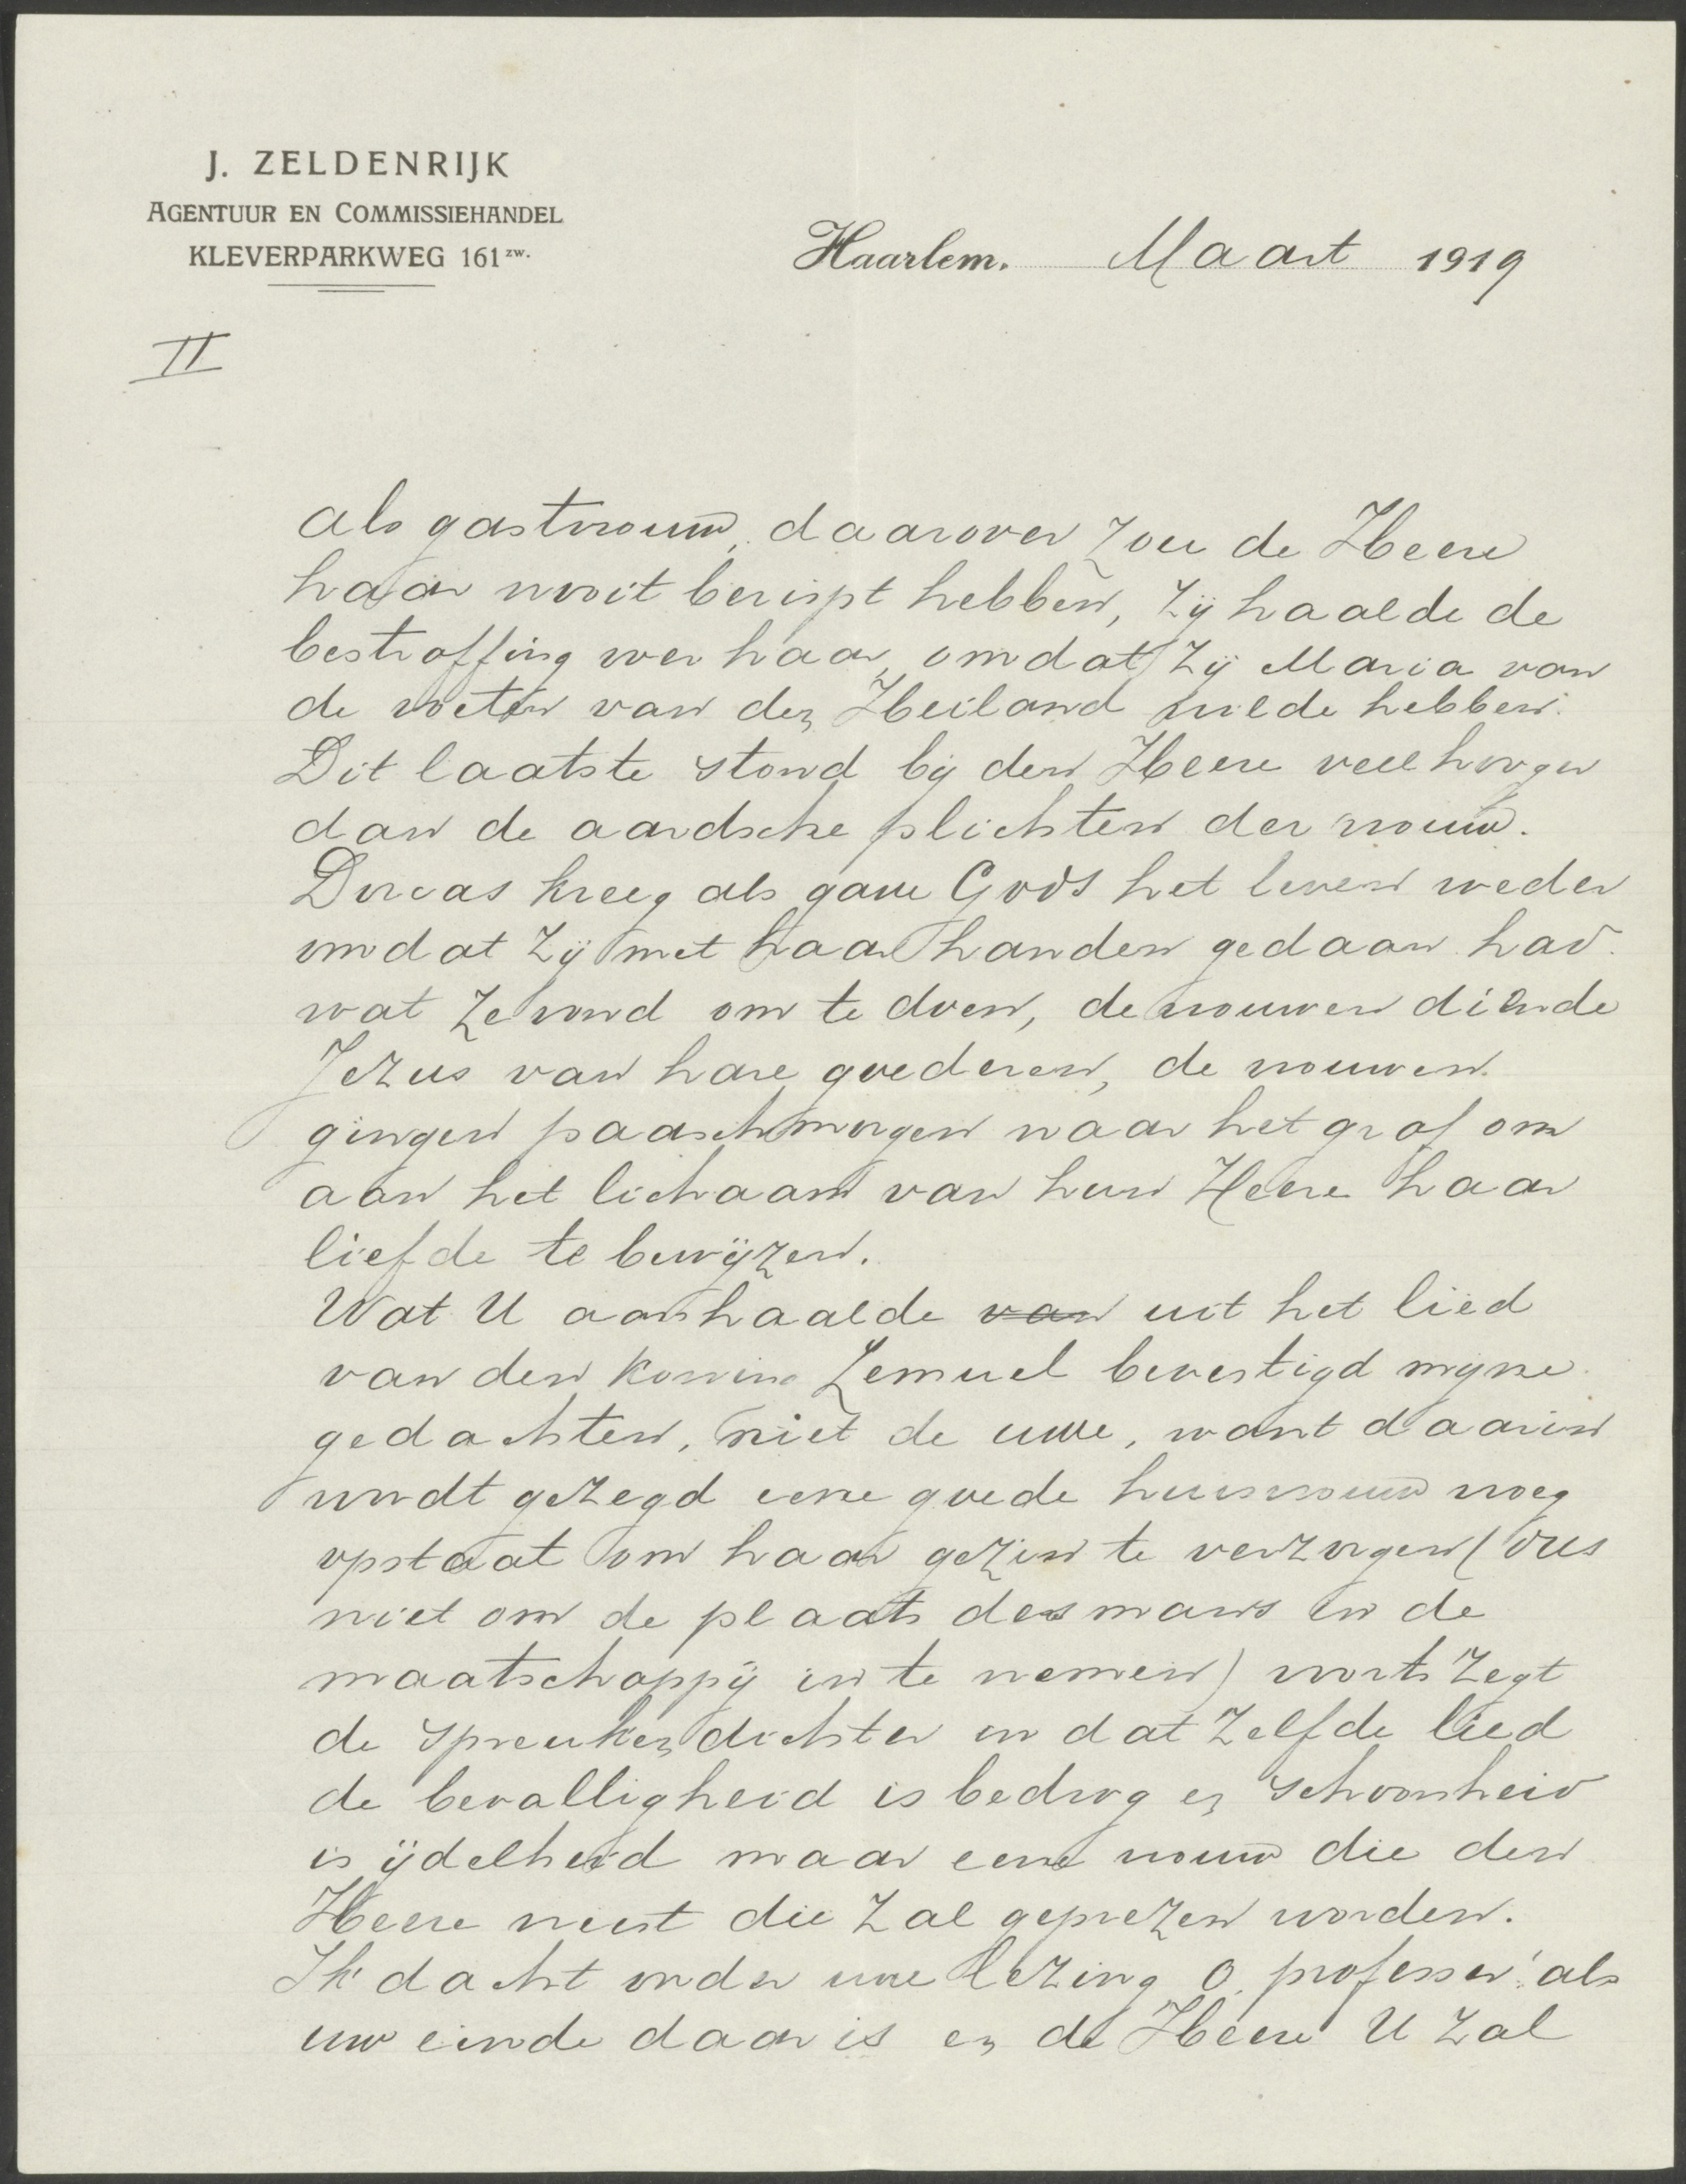 J. ZELDENRIJK
AGENTUUR EN COMMISSIEHANDEL
KLEVERPARKWEG 161 zw.
Haarlem. Maart 1919
II
als gastvrouw, daarover zou de Heere
haar nooit berispt hebben, zij haalde de
bestraffing over haar, omdat zij Maria van
de voeten van den Heiland wilde hebben.
Dit laatste stond bij den Heere veel hooger
dan de aardsche plichten der vrouw.
Dorcas kreeg als gave Gods het leven weder
omdat zij met haar handen gedaan had.
wat ze vond om te doen, de vrouwen diende
Jezus van hare goederen, de vrouwen
gingen paaschmorgen naar het graf om
aan het lichaam van hun Heere haar
liefde te bewijzen.
Wat U aanhaalde van uit het lied
van den koning Lemuel bevestigd mijne
gedachten, niet de uwe, want daarin
wordt gezegd eene goede huisvrouw vroeg
opstaat om haar gezin te verzorgen (dus
niet om de plaats des mans in de
maatschappij in te nemen) voorts zegt
de spreukendichter in dat zelfde lied
de bevalligheid is bedrog en schoonheid
is ijdelheid maar eene vrouw die den
Heere vreest die zal geprezen worden.
Ik dacht onder uwe lezing O, professor! als
uw einde daar is en de Heere U zal